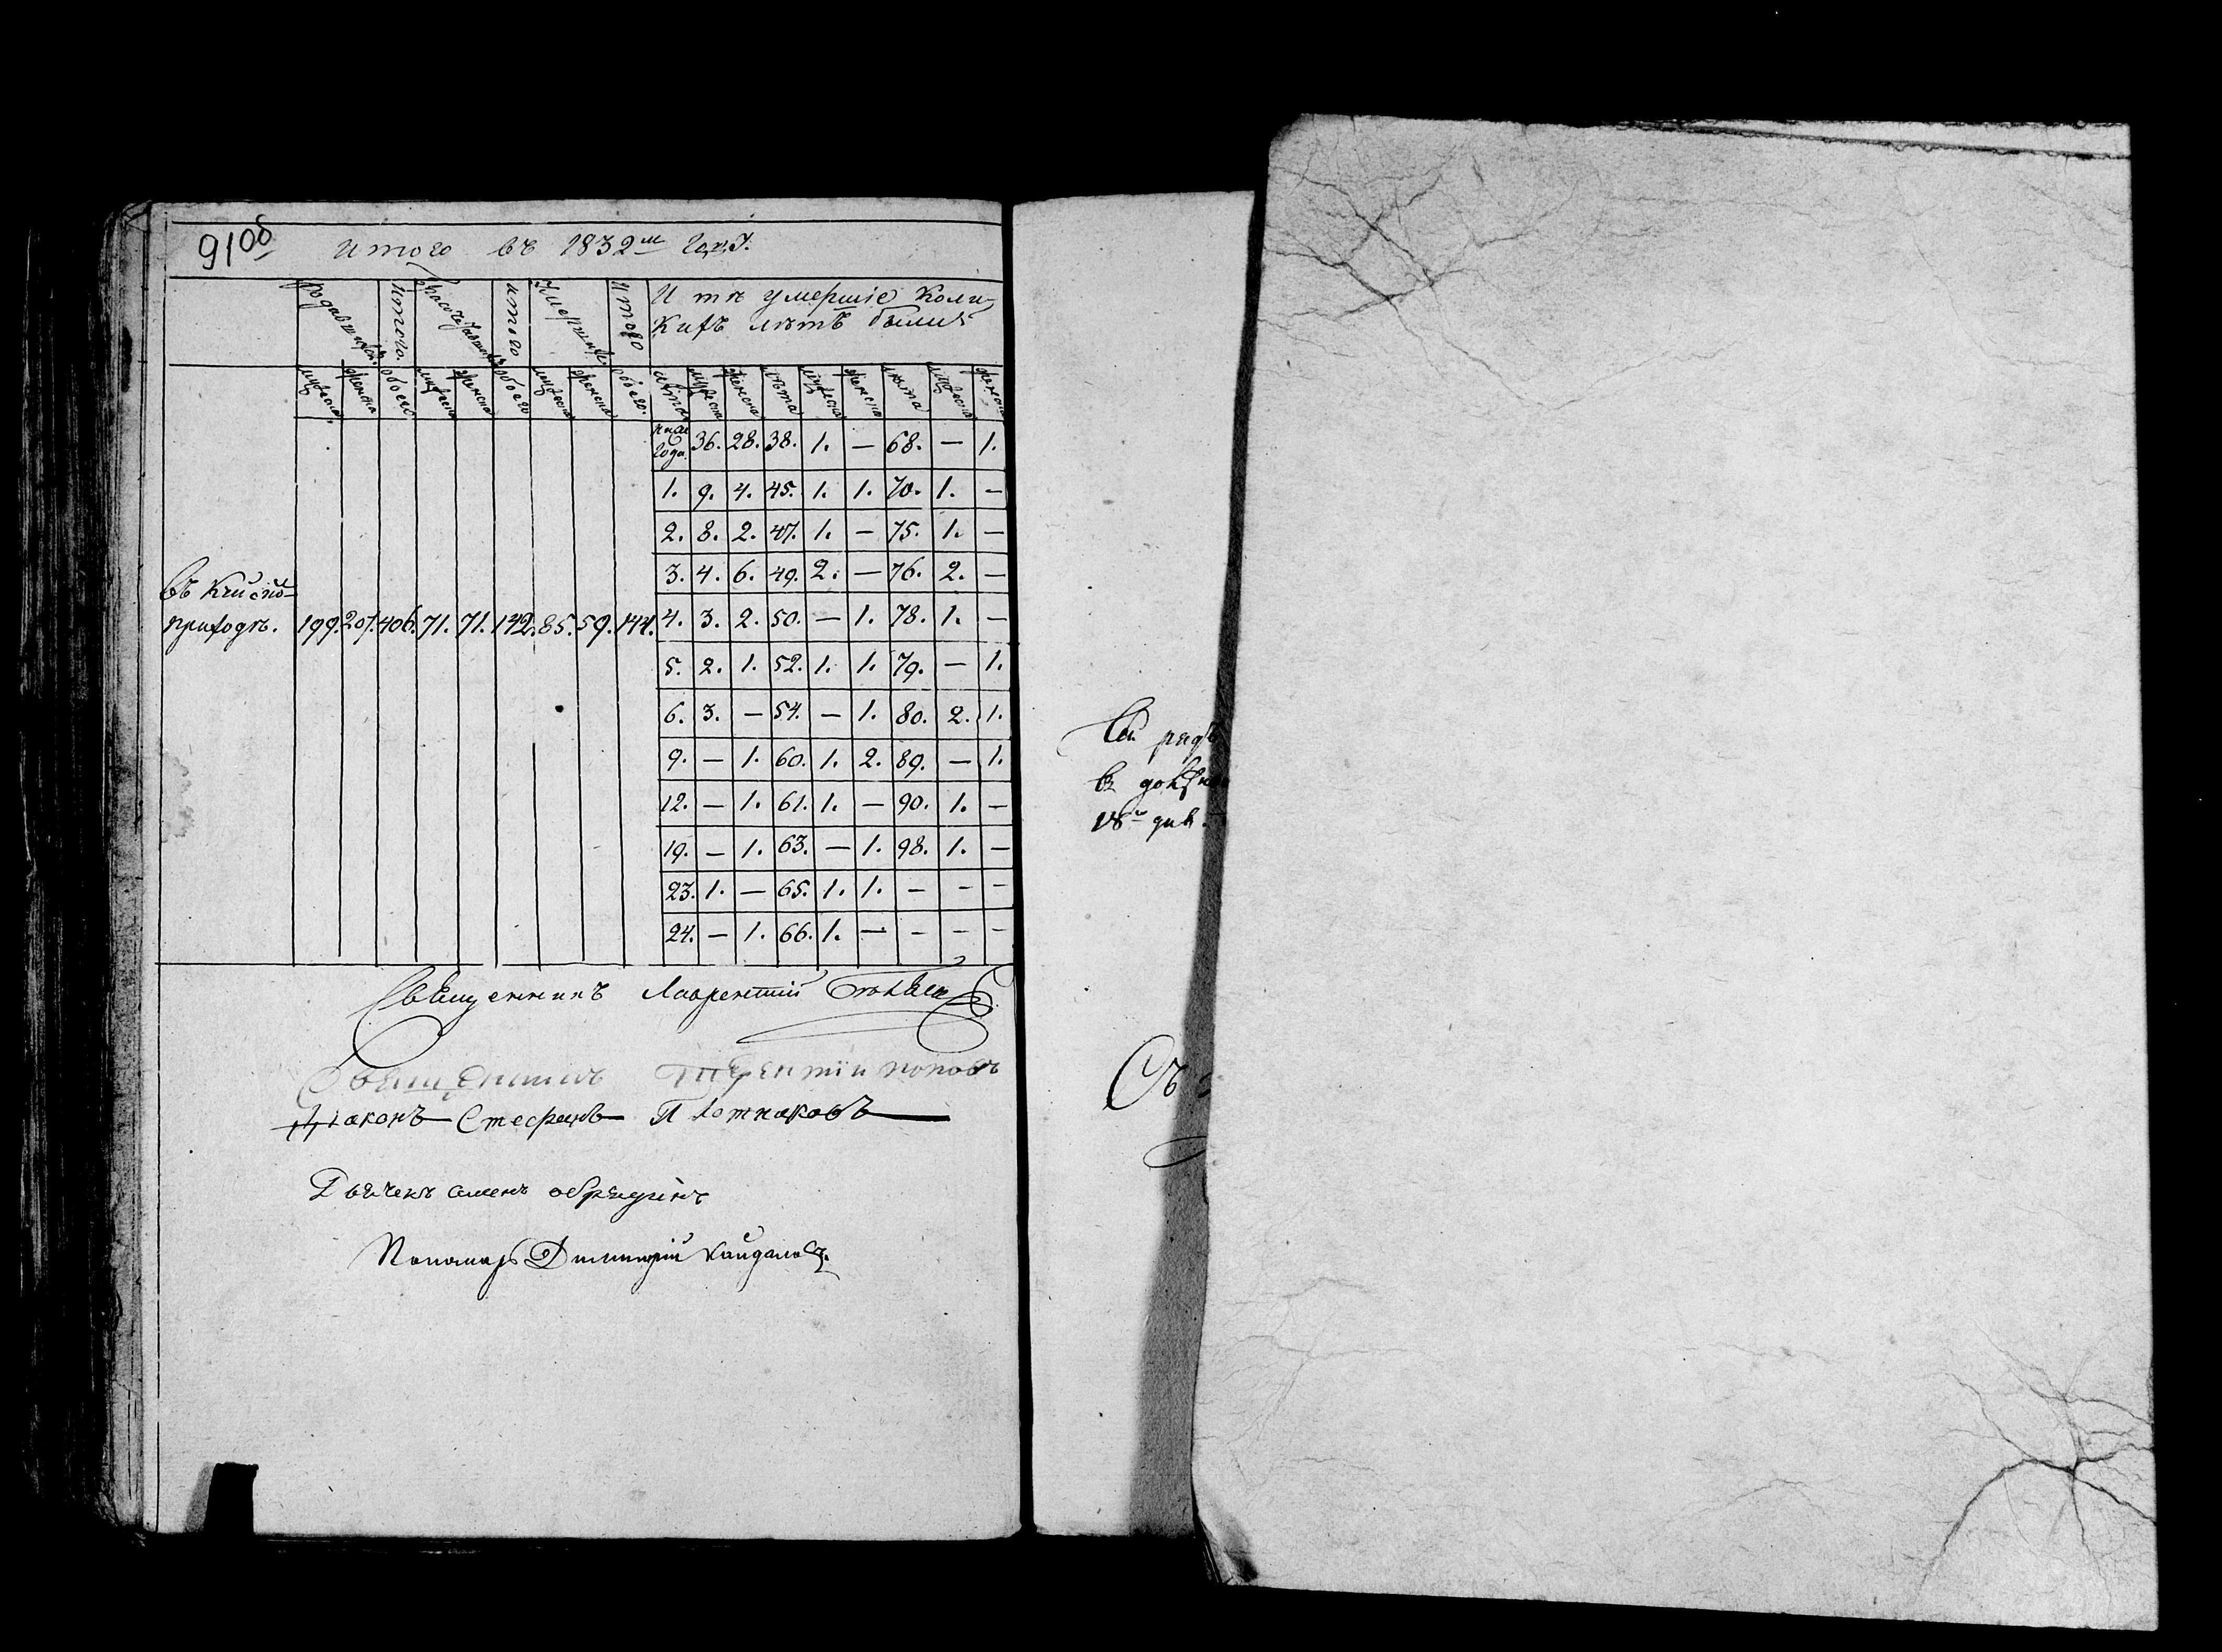 91об
итого въ 1832м годꙋ.
родившихся. Итого. бракосочетавшихся итого Умершихъ. Итого И тѣ умершіе Коли-
кихъ лѣтъ были
мужеска. женска обоего мужеска женска обоего мужеска женска обоего. лѣта мужеска женска лѣта мужеска женска лѣта мужеска женска
ниже года. 36. 28. 38. 1. — 68. — 1.
1. 9. 4. 45. 1. 1. 70. 1. —
2. 8. 2. 47. 1. — 75. 1. —
3. 4. 6. 49. 2. — 76. 2. —
въ
приходѣ. 199. 207. 406. 71. 71. 142. 85. 59. 144. 4. 3. 2. 50. — 1. 78. 1. —
5. 2. 1. 52. 1. 1. 79. — 1.
6. 3. — 54. — 1. 80. 2. 1.
9. — 1. 60. 1. 2. 89. — 1.
12. — 1. 61. 1. — 90. 1. —
19. — 1. 63. — 1. 98. 1. —
23. 1. — 65. 1. 1. — — —
24. — 1. 66. 1. — — — —
Священникъ Лаврентий
Священникъ Терентіи поповъ
Діаконъ Стефанъ Плотниковъ
Дьячекъ семенъ
Пономарь Димитрій кайдаловъ.
Съ